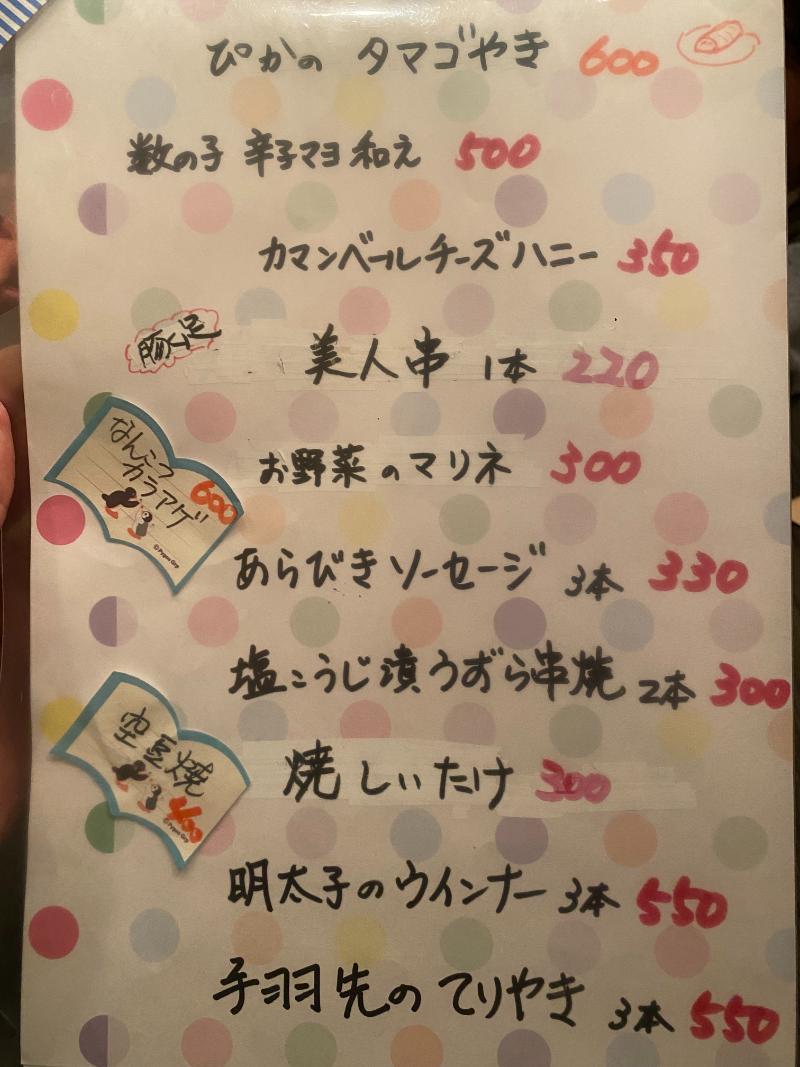 ぴかの タマゴやき 600
数の子 辛子マヨ和え 500
カマンベールチーズハニー 350
豚足
美人串 1本 220
なんこつ
カラアゲ
600
お野菜のマリネ 300
あらびきソーセージ 3本 330
塩こうじ漬うずら串焼 2本 300
空豆焼
400
焼しいたけ 300
明太子のウインナー 3本 550
手羽先のてりやき 3本 550